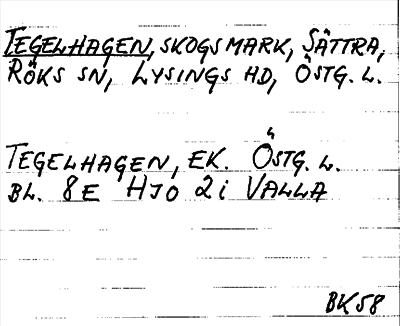 TEGELHAGEN, SKOGSMARK, SÄTTRA,
RÖKS SN, LYSINGS HD, ÖSTG. L.
TEGELHAGEN, EK. ÖSTG. L.
BL. 8E HJO 2i VALLA
BK58